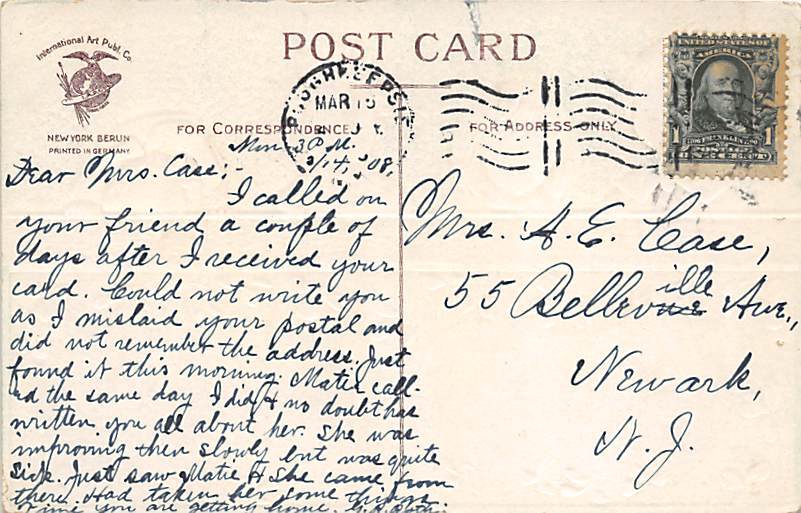 International Art Publ. Co.
NEW YORK BERLIN
PRINTED IN GERMANY
POST CARD
FOR CORRESPONDENCE
FOR ADDRESS ONLY
POUGHKEEPSIE
MAR 15
N.Y.
UNITED STATES OF
AMERICA
1 FRANKLIN 1
POSTAGE
ONE CENT
3 P.M.
3/14, '08,
Dear Mrs. Case;-
I called on
your friend a couple of
days after I received your
card. Could not write you
as I mislaid your postal and
did not remember the address. Just
found it this morning. Matie call-
ed the same day I did & no doubt has
written you all about her. She was
improving then slowly but was quite
sick. Just saw Matie & she came from
there. Had taken her some things
time you are getting home.
Mrs. A. E. Case,
55 Belleville Ave.,
Newark,
N. J.